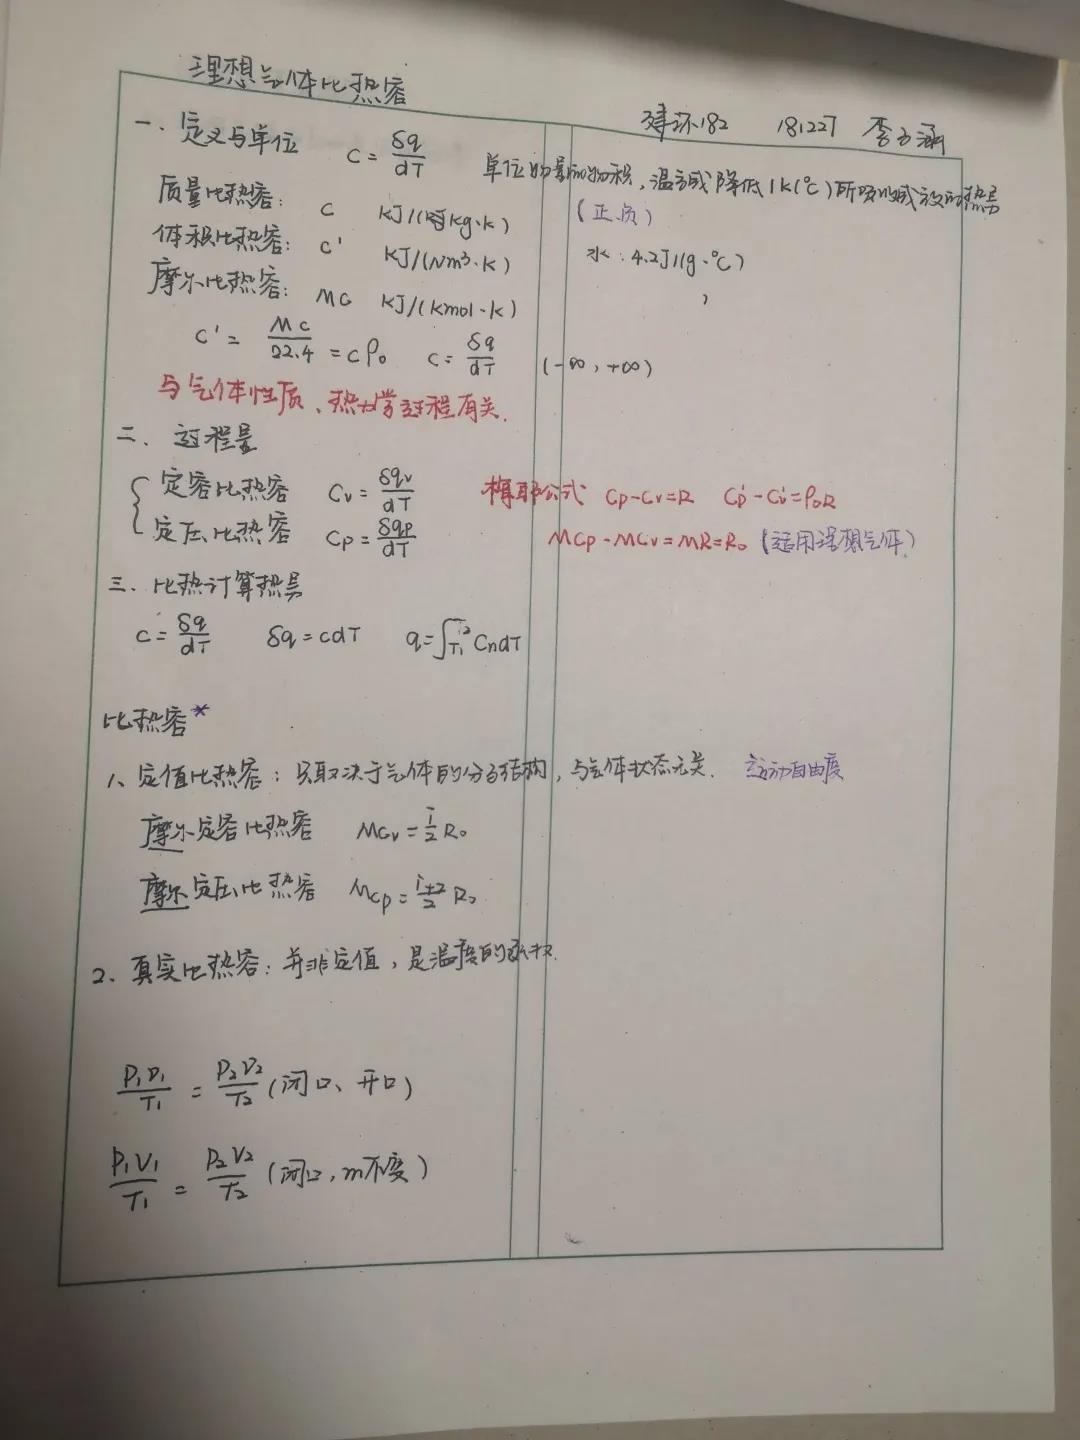 理想气体比热容
建环182 181227 李子涵
一、定义与单位 c=δq/dT 单位物量的物积,温高或降低1k(℃)所吸收或放的热量
质量比热容: c KJ/(kg·k) (正.负)
体积比热容: c' KJ/(Nm³·k) 水:4.2J/(g·℃)
摩尔比热容: Mc KJ/(kmol·k)
c'=Mc/22.4=cρ₀ c=δq/dT (-∞,+∞)
与气体性质、热力学过程有关.
二、过程量
定容比热容 Cv=δqv/dT 梅耶公式 Cp-Cv=R Cp'-Cv'=ρ₀R
定压比热容 Cp=δqp/dT MCp-MCv=MR=R₀(适用理想气体)
三、比热计算热量
c=δq/dT δq=cdT q=∫T₁T₂CndT
比热容*
1、定值比热容:只取决于气体的分子结构,与气体状态无关. 运动自由度
摩尔定容比热容 Mcv=i/2 R₀
摩尔定压比热容 Mcp=i+2/2 R₀
2、真实比热容:并非定值,是温度的函数.
P₁v₁/T₁=P₂v₂/T₂(闭口、开口)
P₁V₁/T₁=P₂V₂/T₂(闭口,m不变)